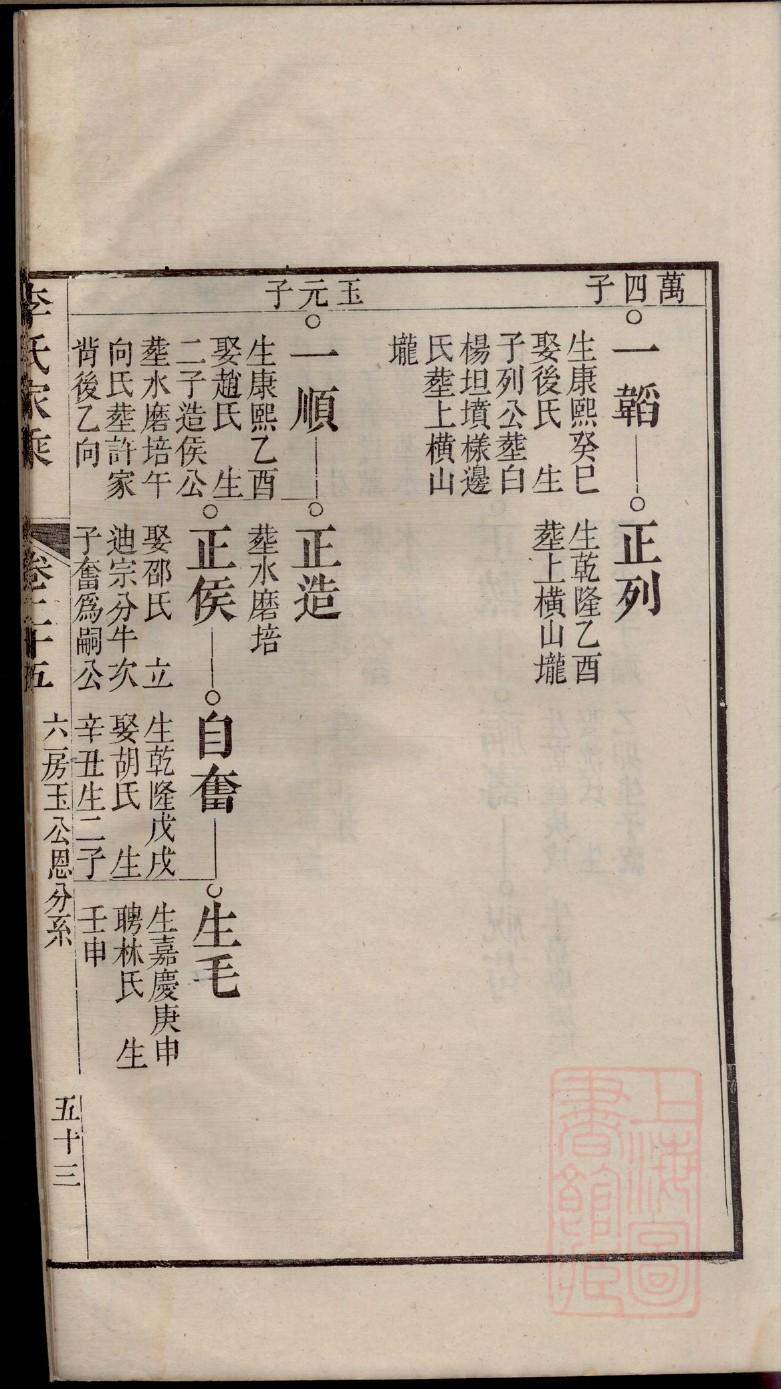 萬四子
一韜
生康熙癸巳
娶後氏 生
子列公塟白
楊坦墳樣邊
氏塟上橫山
壠
正列
生乾隆乙酉
塟上橫山壠
玉元子
一順
生康熙乙酉
娶趙氏 生
二子造侯公
塟水磨培午
向氏塟許家
背後乙向
正造
塟水磨培
正侯
娶邵氏 立
迪宗分牛次
子奮爲嗣公
自奮
生乾隆戊戌
娶胡氏 生
辛丑生二子
生毛
生嘉慶庚申
聘林氏 生
壬申
李氏家乘
卷二十五
六房玉公恩分系
五十三
上海圖
書館藏